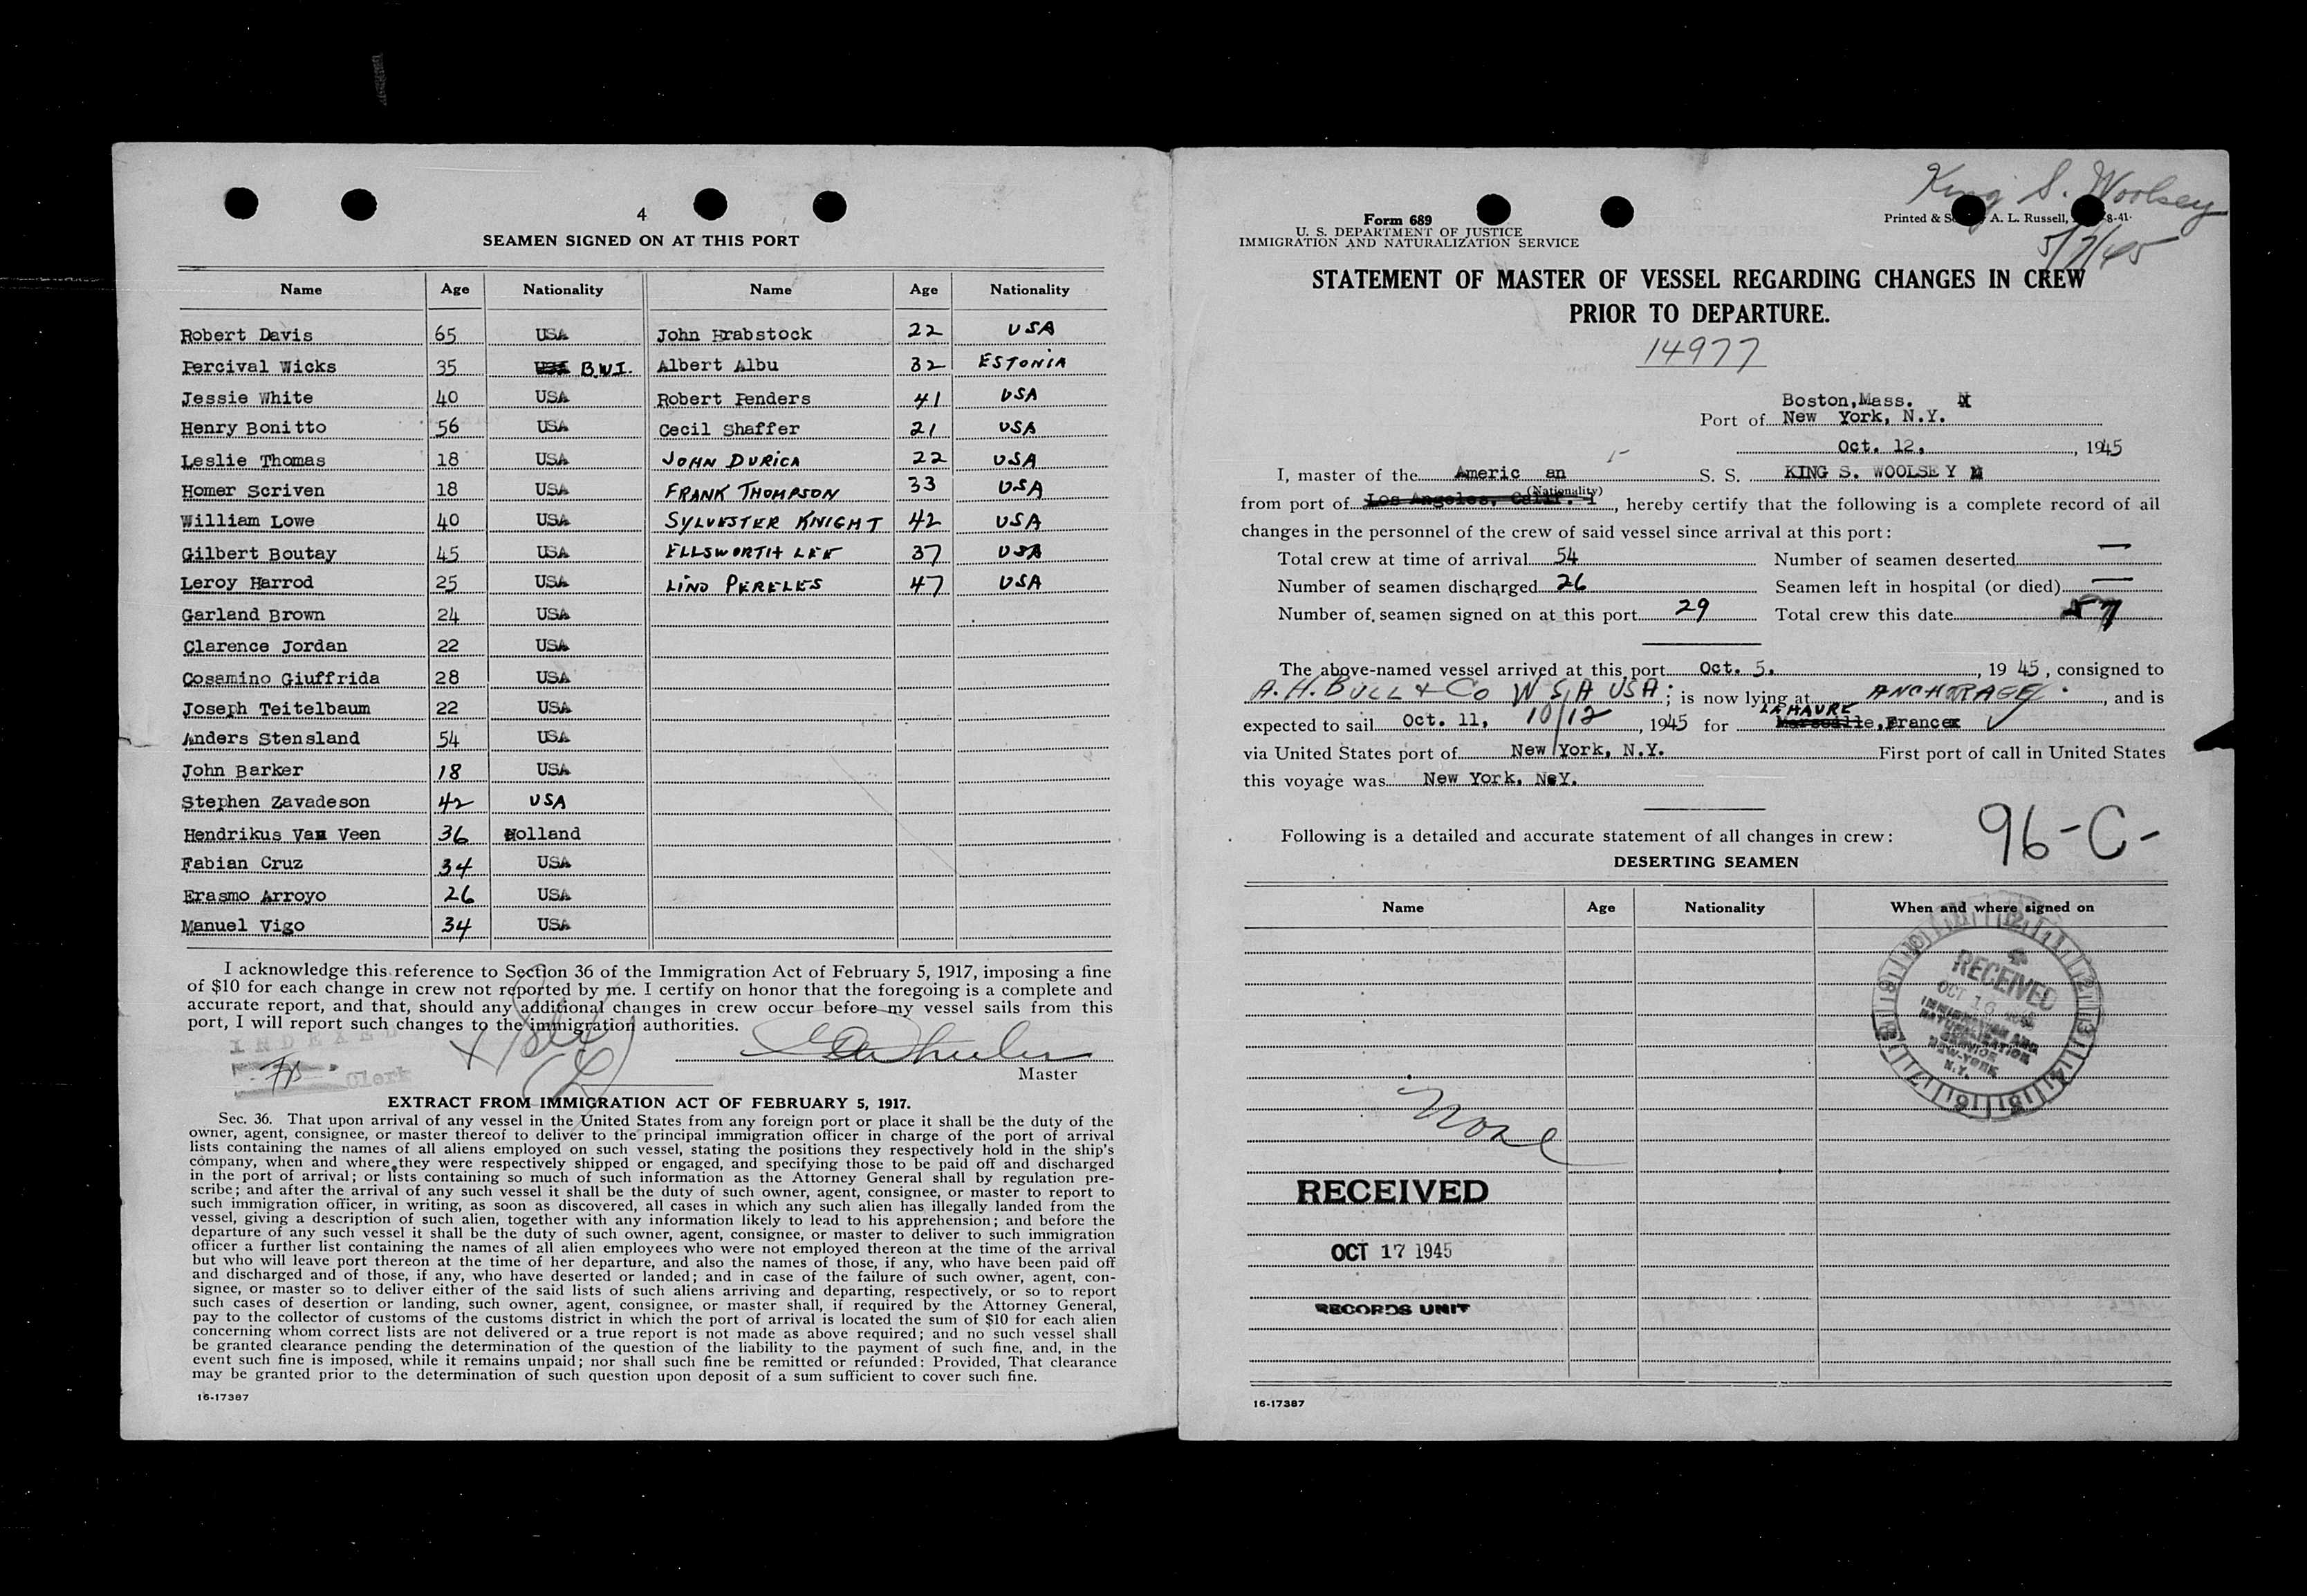 4
SEAMEN SIGNED ON AT THIS PORT
Name Age Nationality Name Age Nationality
Robert Davis 65 USA John Hrabstock 22 USA
Percival Wicks 35 USA B.W.I. Albert Albu 32 ESTONIA
Jessie White 40 USA Robert Penders 41 USA
Henry Bonitto 56 USA Cecil Shaffer 21 USA
Leslie Thomas 18 USA JOHN DURICA 22 USA
Homer Scriven 18 USA FRANK THOMPSON 33 USA
William Lowe 40 USA SYLVESTER KNIGHT 42 USA
Gilbert Boutay 45 USA ELLSWORTH LEE 37 USA
Leroy Harrod 25 USA LINO PERELES 47 USA
Garland Brown 24 USA
Clarence Jordan 22 USA
Cosamino Giuffrida 28 USA
Joseph Teitelbaum 22 USA
Anders Stensland 54 USA
John Barker 18 USA
Stephen Zavadeson 42 USA
Hendrikus Van Veen 36 Holland
Fabian Cruz 34 USA
Erasmo Arroyo 26 USA
Manuel Vigo 34 USA
I acknowledge this reference to Section 36 of the Immigration Act of February 5, 1917, imposing a fine
of $10 for each change in crew not reported by me. I certify on honor that the foregoing is a complete and
accurate report, and that, should any additional changes in crew occur before my vessel sails from this
port, I will report such changes to the immigration authorities.
INDEXED
Clerk
Master
EXTRACT FROM IMMIGRATION ACT OF FEBRUARY 5, 1917.
Sec. 36. That upon arrival of any vessel in the United States from any foreign port or place it shall be the duty of the
owner, agent, consignee, or master thereof to deliver to the principal immigration officer in charge of the port of arrival
lists containing the names of all aliens employed on such vessel, stating the positions they respectively hold in the ship's
company, when and where they were respectively shipped or engaged, and specifying those to be paid off and discharged
in the port of arrival; or lists containing so much of such information as the Attorney General shall by regulation pre-
scribe; and after the arrival of any such vessel it shall be the duty of such owner, agent, consignee, or master to report to
such immigration officer, in writing, as soon as discovered, all cases in which any such alien has illegally landed from the
vessel, giving a description of such alien, together with any information likely to lead to his apprehension; and before the
departure of any such vessel it shall be the duty of such owner, agent, consignee, or master to deliver to such immigration
officer a further list containing the names of all alien employees who were not employed thereon at the time of the arrival
but who will leave port thereon at the time of her departure, and also the names of those, if any, who have been paid off
and discharged and of those, if any, who have deserted or landed; and in case of the failure of such owner, agent, con-
signee, or master so to deliver either of the said lists of such aliens arriving and departing, respectively, or so to report
such cases of desertion or landing, such owner, agent, consignee, or master shall, if required by the Attorney General,
pay to the collector of customs of the customs district in which the port of arrival is located the sum of $10 for each alien
concerning whom correct lists are not delivered or a true report is not made as above required; and no such vessel shall
be granted clearance pending the determination of the question of the liability to the payment of such fine, and, in the
event such fine is imposed, while it remains unpaid; nor shall such fine be remitted or refunded: Provided, That clearance
may be granted prior to the determination of such question upon deposit of a sum sufficient to cover such fine.
16-17387
King S. Woolsey
5/7/45
Form 689
U. S. DEPARTMENT OF JUSTICE
IMMIGRATION AND NATURALIZATION SERVICE
Printed & A. L. Russell, 8-41
STATEMENT OF MASTER OF VESSEL REGARDING CHANGES IN CREW
PRIOR TO DEPARTURE.
14977
Boston,Mass.
Port of New York, N.Y.
Oct. 12, 1945
I, master of the Americ an S. S. KING S. WOOLSEY
(Nationality)
from port of Los Angeles, Calif. , hereby certify that the following is a complete record of all
changes in the personnel of the crew of said vessel since arrival at this port:
Total crew at time of arrival 54 Number of seamen deserted —
Number of seamen discharged 26 Seamen left in hospital (or died) —
Number of seamen signed on at this port 29 Total crew this date 57
The above-named vessel arrived at this port Oct. 5. , 19 45, consigned to
A. H. BULL & Co W S A USA ; is now lying at ANCHORAGE , and is
LA HAVRE
expected to sail Oct. 11, 10/12 , 1945 for Marseille, France
via United States port of New York, N.Y. First port of call in United States
this voyage was New York, N.Y.
Following is a detailed and accurate statement of all changes in crew:
96-C-
DESERTING SEAMEN
Name Age Nationality When and where signed on
RECEIVED
OCT 16
IMMIGRATION AND
NATURALIZATION
SERVICE
NEW-YORK
N.Y.
None
RECEIVED
OCT 17 1945
RECORDS UNIT
16-17387